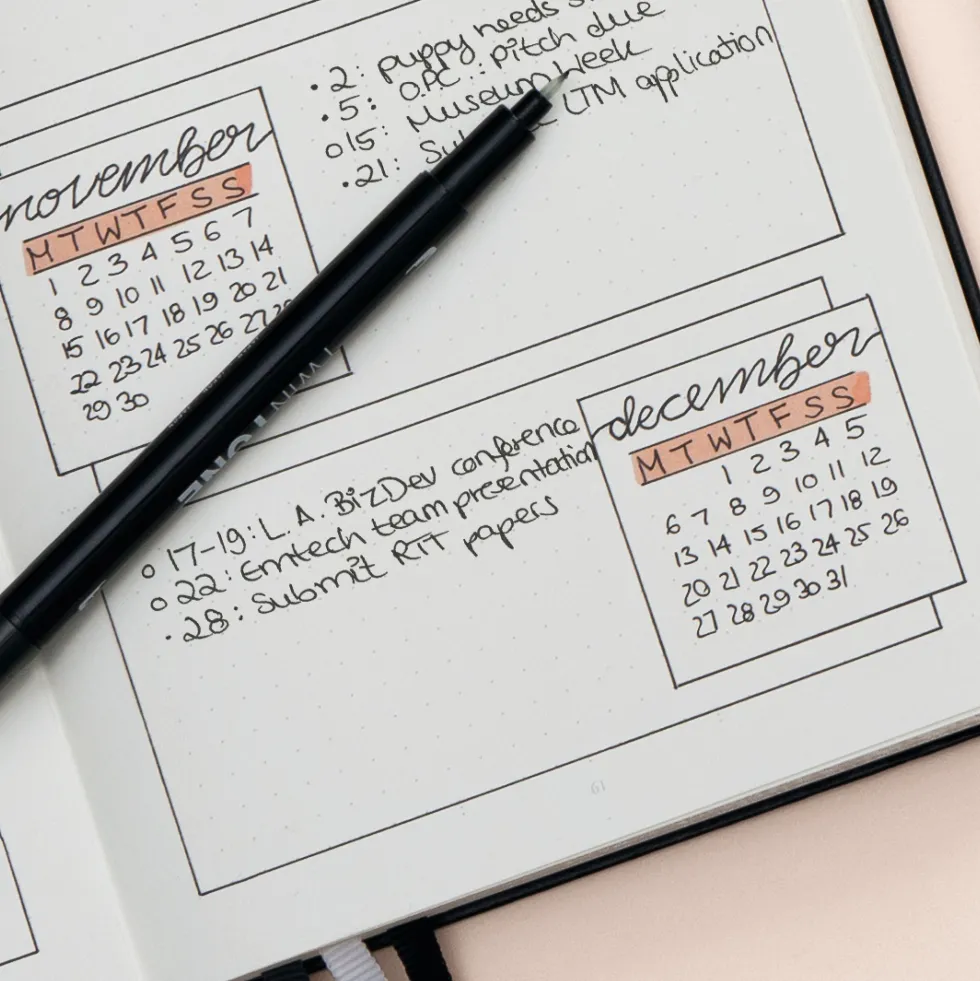 november
M T W T F S S
1 2 3 4 5 6 7
8 9 10 11 12 13 14
15 16 17 18 19 20 21
22 23 24 25 26 27
29 30
2: puppy needs
5: OPC: pitch due
15: Museum Week
21: LTM application
december
M T W T F S S
1 2 3 4 5
6 7 8 9 10 11 12
13 14 15 16 17 18 19
20 21 22 23 24 25 26
27 28 29 30 31
17-19: L.A. BizDev conference
22: Emtech team presentation
28: Submit RTT papers
61